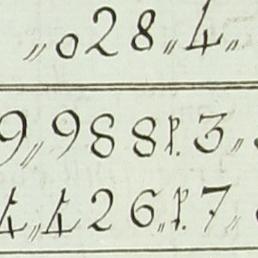 „028„4„
9„988 ꝑ. 3„
4„426„ ꝑ. 7„